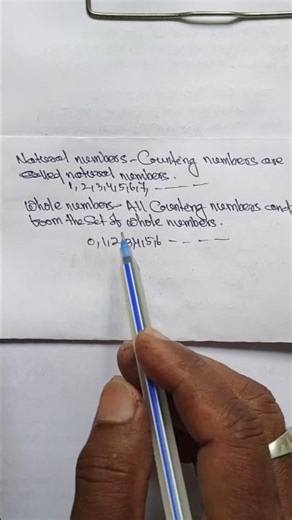 Natural numbers - Counting numbers are
called natural numbers.
1, 2, 3, 4, 5, 6, 7, - - - -
Whole numbers - All Counting numbers and
the Set of whole numbers.
0, 1, 2, 3, 4, 5, 6 - - - -